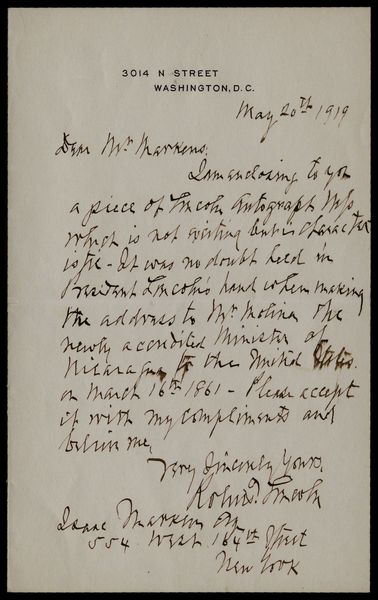 3014 N STREET
WASHINGTON, D.C.
May 20th 1919
Dear Mr Markens:
I am enclosing to you
a piece of Lincoln Autograph Mss
which is not exciting but is character
istic - It was no doubt held in
President Lincoln's hand when making
the address to Mr Molina the
newly accredited Minister of
Nicaragua to the United States
on March 16th 1861 - Please accept
it with my compliments and
believe me,
Very Sincerely Yours,
Robert T. Lincoln
Isaac Markens Esq
554 West 164th Street
New York